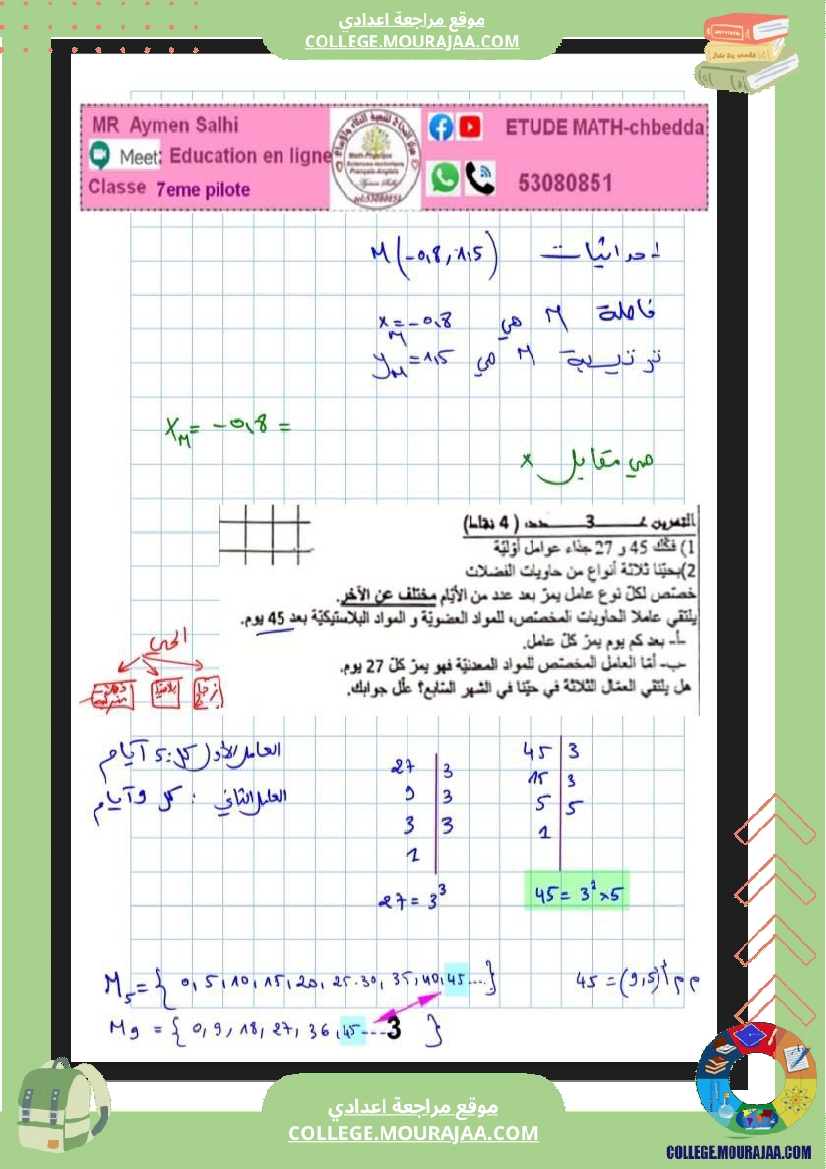 موقع مراجعة اعدادي
COLLEGE.MOURAJAA.COM
MR Aymen Salhi
Meet: Education en ligne
Classe 7eme pilote
ETUDE MATH-chbedda
53080851
احداثيات M(-0,8, 1,5)
فاصلة M هي x_M = -0,8
ترتيبة M هي y_M = 1,5
x_M = -0,8 =
هي مقابل x
التمرين عـــ3ــدد ( 4 نقاط)
1) فكّك 45 و 27 جذاء عوامل أوّليّة
2) بحيّنا ثلاثة أنواع من حاويات الفضلات
خصّص لكلّ نوع عامل يمرّ بعد عدد من الأيّام مختلف عن الآخر.
يلتقي عاملا الحاويات المخصّص، للمواد العضويّة و المواد البلاستيكيّة بعد 45 يوم.
أ- بعد كم يوم يمرّ كلّ عامل.
ب- أمّا العامل المخصّص للمواد المعدنيّة فهو يمرّ كلّ 27 يوم.
هل يلتقي العمّال الثلاثة في حيّنا في الشهر السّابع؟ علّل جوابك.
الحي
العامل الأول كل: 5 أيام
العامل الثاني: كل 9 أيام
27 | 3
9 | 3
3 | 3
1
27 = 3³
45 | 3
15 | 3
5 | 5
1
45 = 3² × 5
M₅ = { 0, 5, 10, 15, 20, 25. 30, 35, 40, 45 .... }
45 = (9, 5) م م أ
M9 = { 0, 9, 18, 27, 36, 45 ... 3 }
موقع مراجعة اعدادي
COLLEGE.MOURAJAA.COM
COLLEGE.MOURAJAA.COM